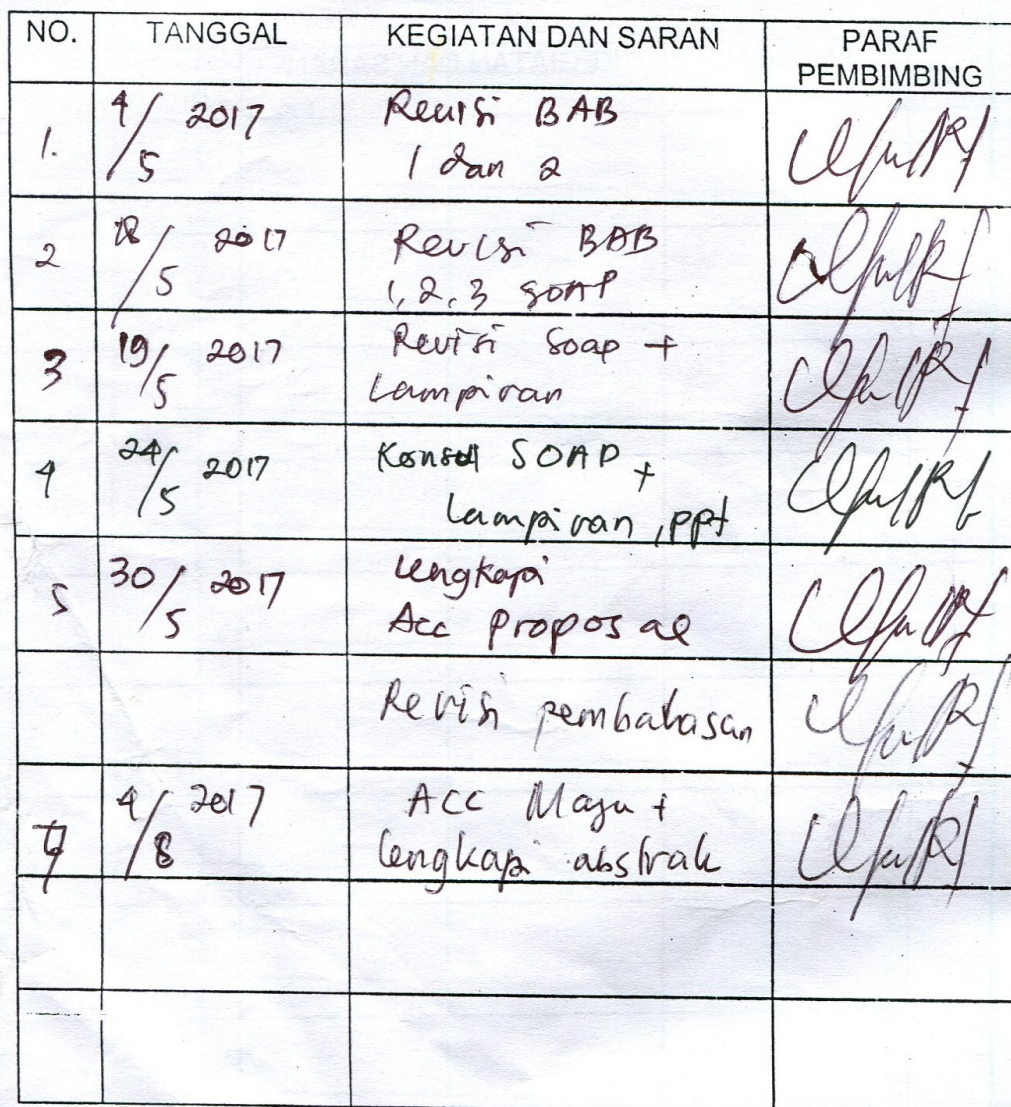 NO. TANGGAL KEGIATAN DAN SARAN PARAF
PEMBIMBING
1. 4/5 2017 Revisi BAB
1 dan 2
2 18/5 2017 Revisi BAB
1, 2, 3 SOAP
3 19/5 2017 Revisi Soap +
Lampiran
4 24/5 2017 Konsul SOAP +
Lampiran, ppt
5 30/5 2017 Lengkapi
Acc Proposal
Revisi pembahasan
7 4/8 2017 ACC Maju +
Lengkapi abstrak